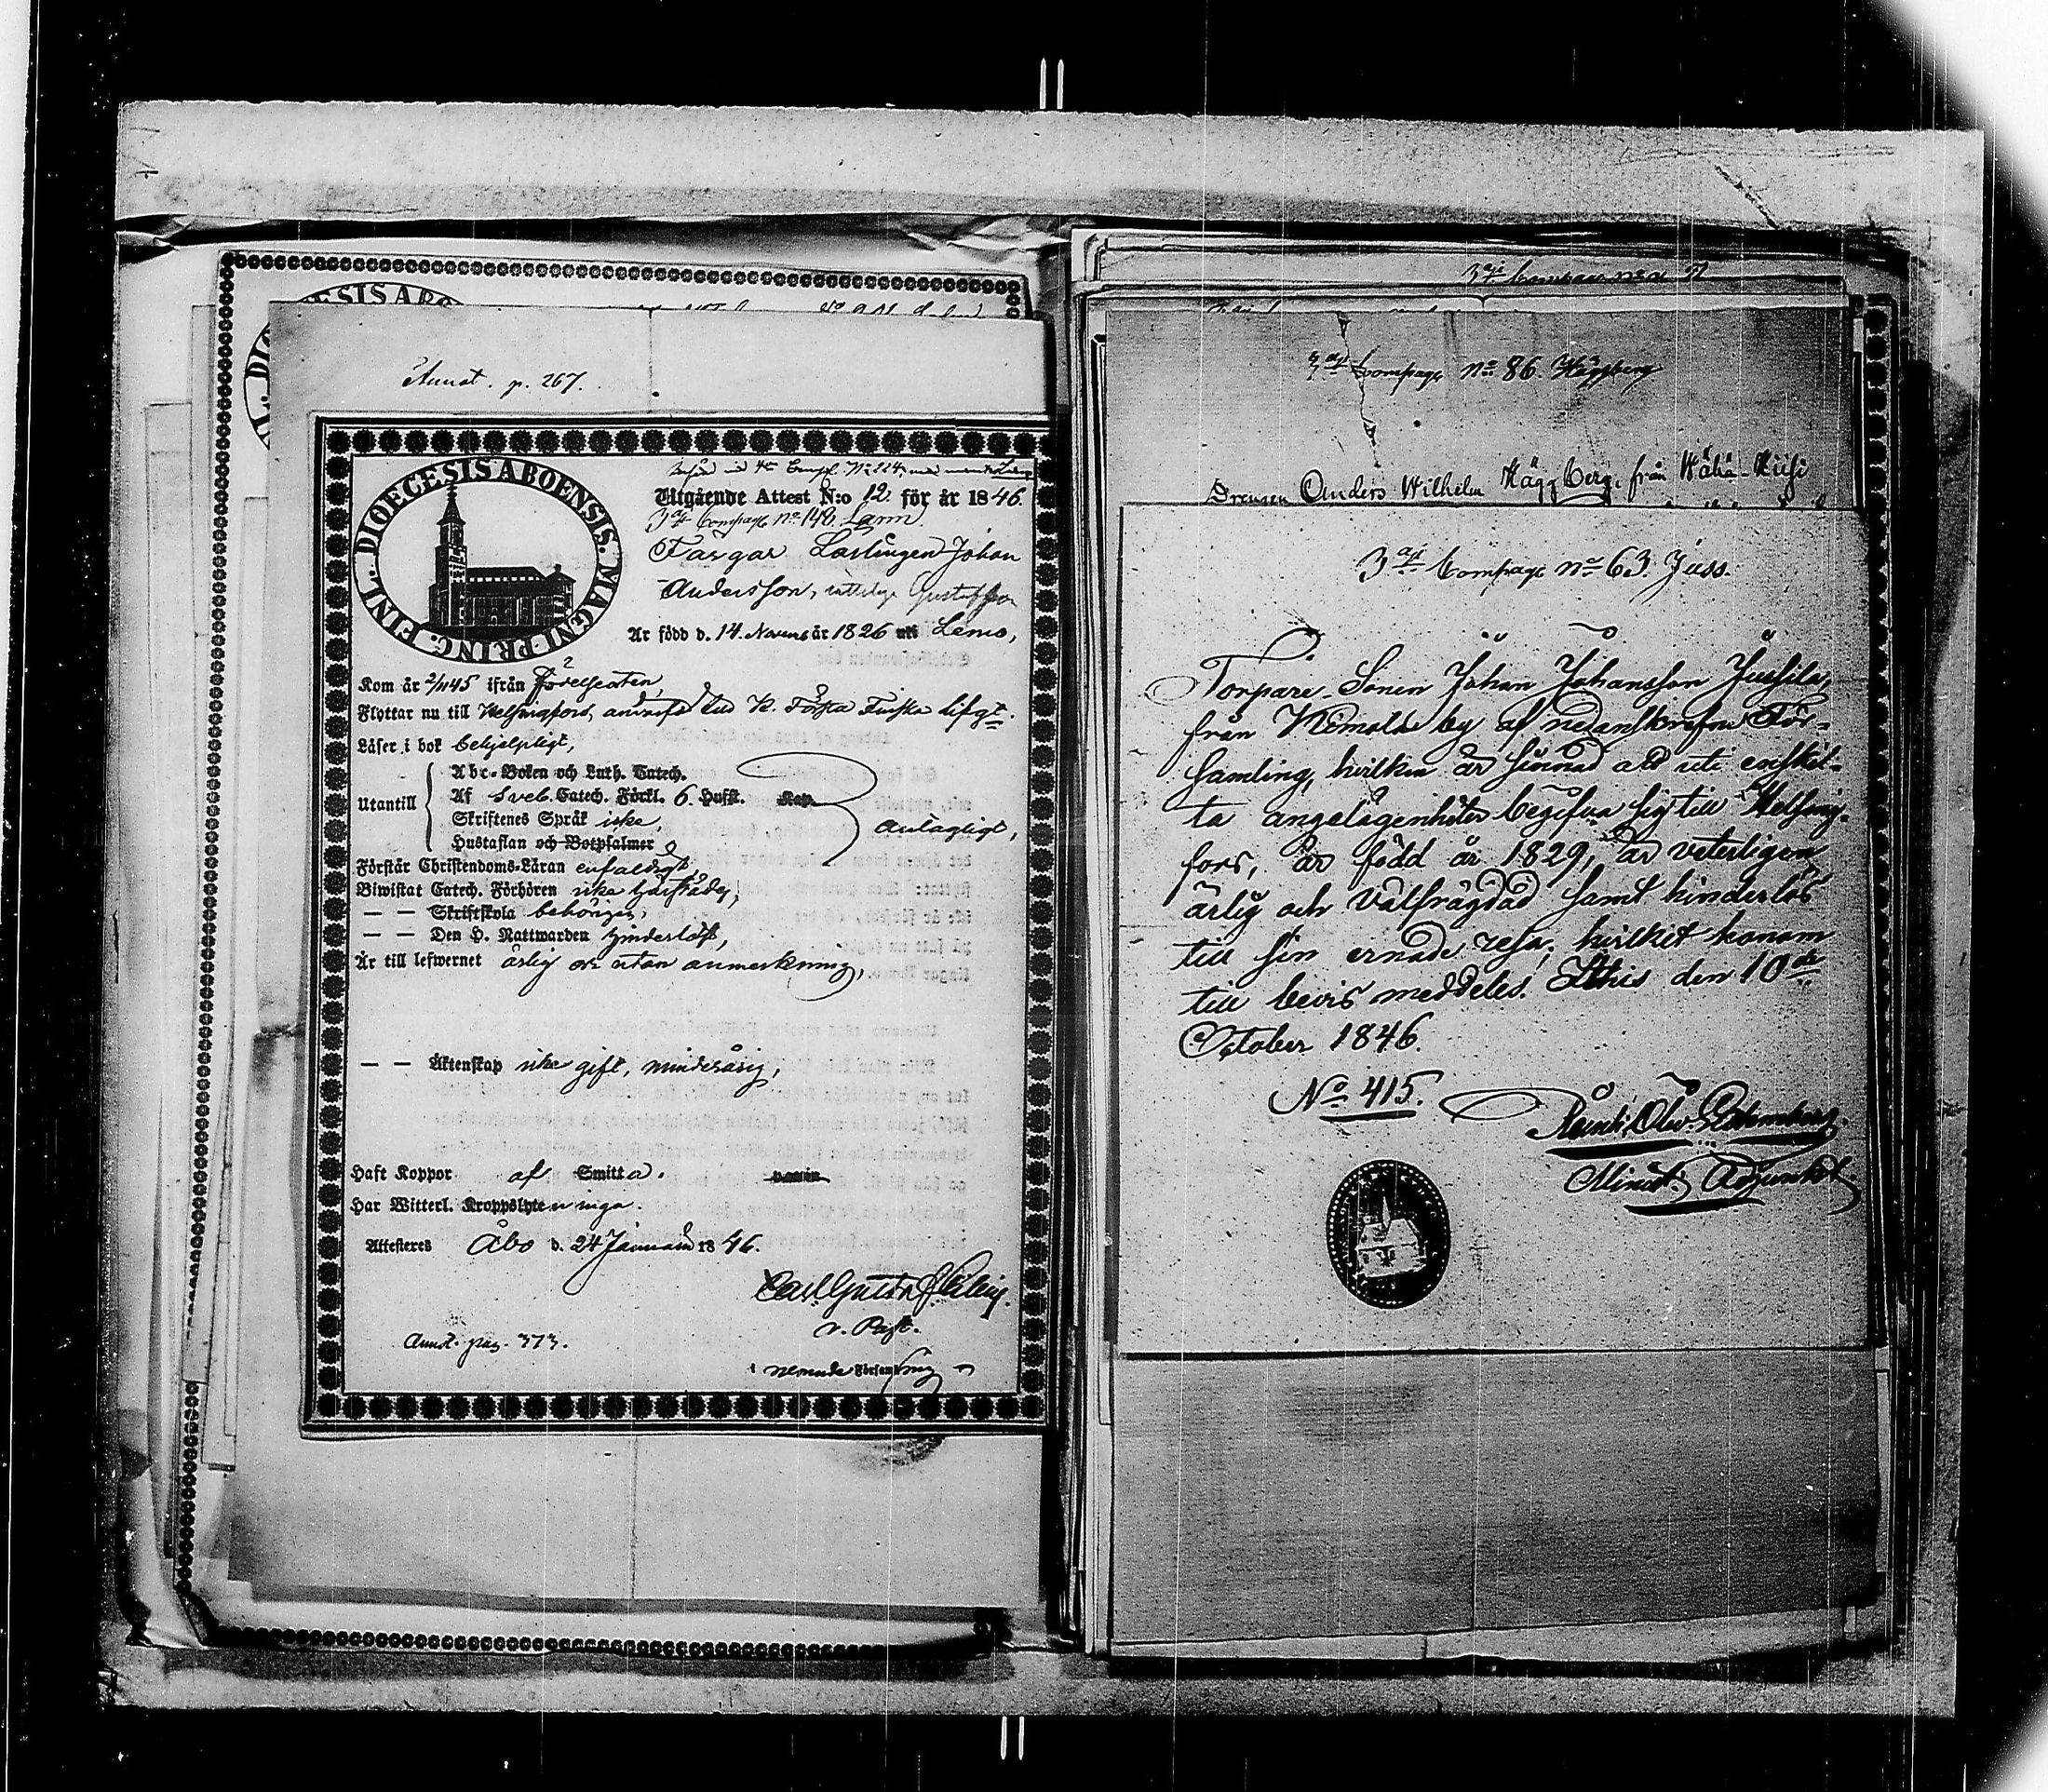 Annot. p. 267.
FINL. DIOECESIS ABOENSIS. MAGNI PRINC.
4de Comp. No 224
Utgående Attest N:o 12. för år 1846.
3dje Compagn no 148. Larm
Färgar Lärlingen Johan
Andersson, rättelige Gustafsson
Är född d. 14 Novemb år 1826 uti Lemo,
Kom år 2/11 45 ifrån
Flyttar nu till Helsingfors, vid K. Första Finska Lifgt.
Läser i bok behjelpligt,
Utantill
Abc-Boken och Luth. Catech.
Af Sveb. Catech. Förkl. 6. Hufst. Kap.
Skriftenes Språk icke,
Hustaflan och Botpsalmer
antagligt,
Förstår Christendoms-Läran enfaldigt,
Biwistat Catech. Förhören icke
— — Skriftskola behörigen,
— — Den H. Nattwarden hinderlöst,
Är till lefwernet ärlig och utan anmerkning,
— — Äktenskap icke gift, minderårig,
Haft Koppor af Smitta.
Har Witterl. Kroppslyten inga.
Attesteres Åbo d. 24 Januarii 1846.
Carl Gustaf
v. Past.
Annot. pag. 373.
i nämnde Församling
3dje Compagn no
3dje Compagn no 86. Häggberg
Drengen Anders Wilhelm Häggberg, från
3dje Compagn no 63. Juss.
Torpare Sonen Johan Johansson Jussila,
från Nemola by af nedanskrefne För-
samling, hvilken är sinnad att uti enskil-
ta angelägenheter begifva sig till Helsing-
fors, är född år 1829, är veterligen
ärlig och välfrägdad samt hinderlös
till sin ernade resa; hvilket honom
till bevis meddeles. Lthis den 10de
October 1846.
No 415.
Minist. Adjunkt.